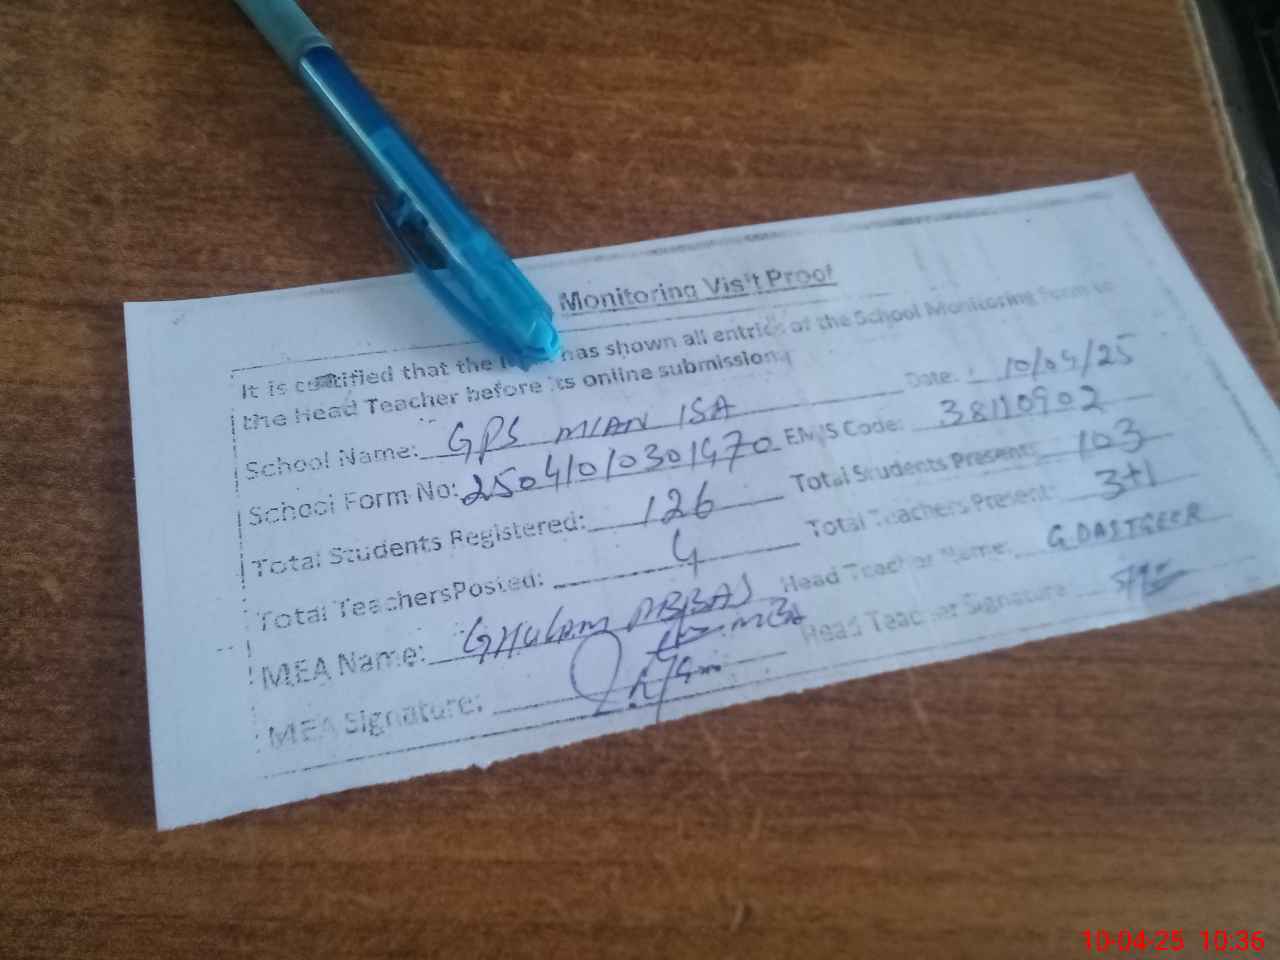 Monitoring Visit Proof
It is certified that the has shown all entries of the School Monitoring Form to
the Head Teacher before its online submission.
School Name: GPS MIAN ISA Date: 10/04/25
School Form No: 25041010301470 EMIS Code: 38110902
Total Students Registered: 126 Total Students Present: 103
Total TeachersPosted: 4 Total Teachers Present: 3+1
MEA Name: GHULAM ABBAS Head Teacher Name: G.DASTGEER
MEA Signature: Head Teacher Signature
10-04-25 10:36